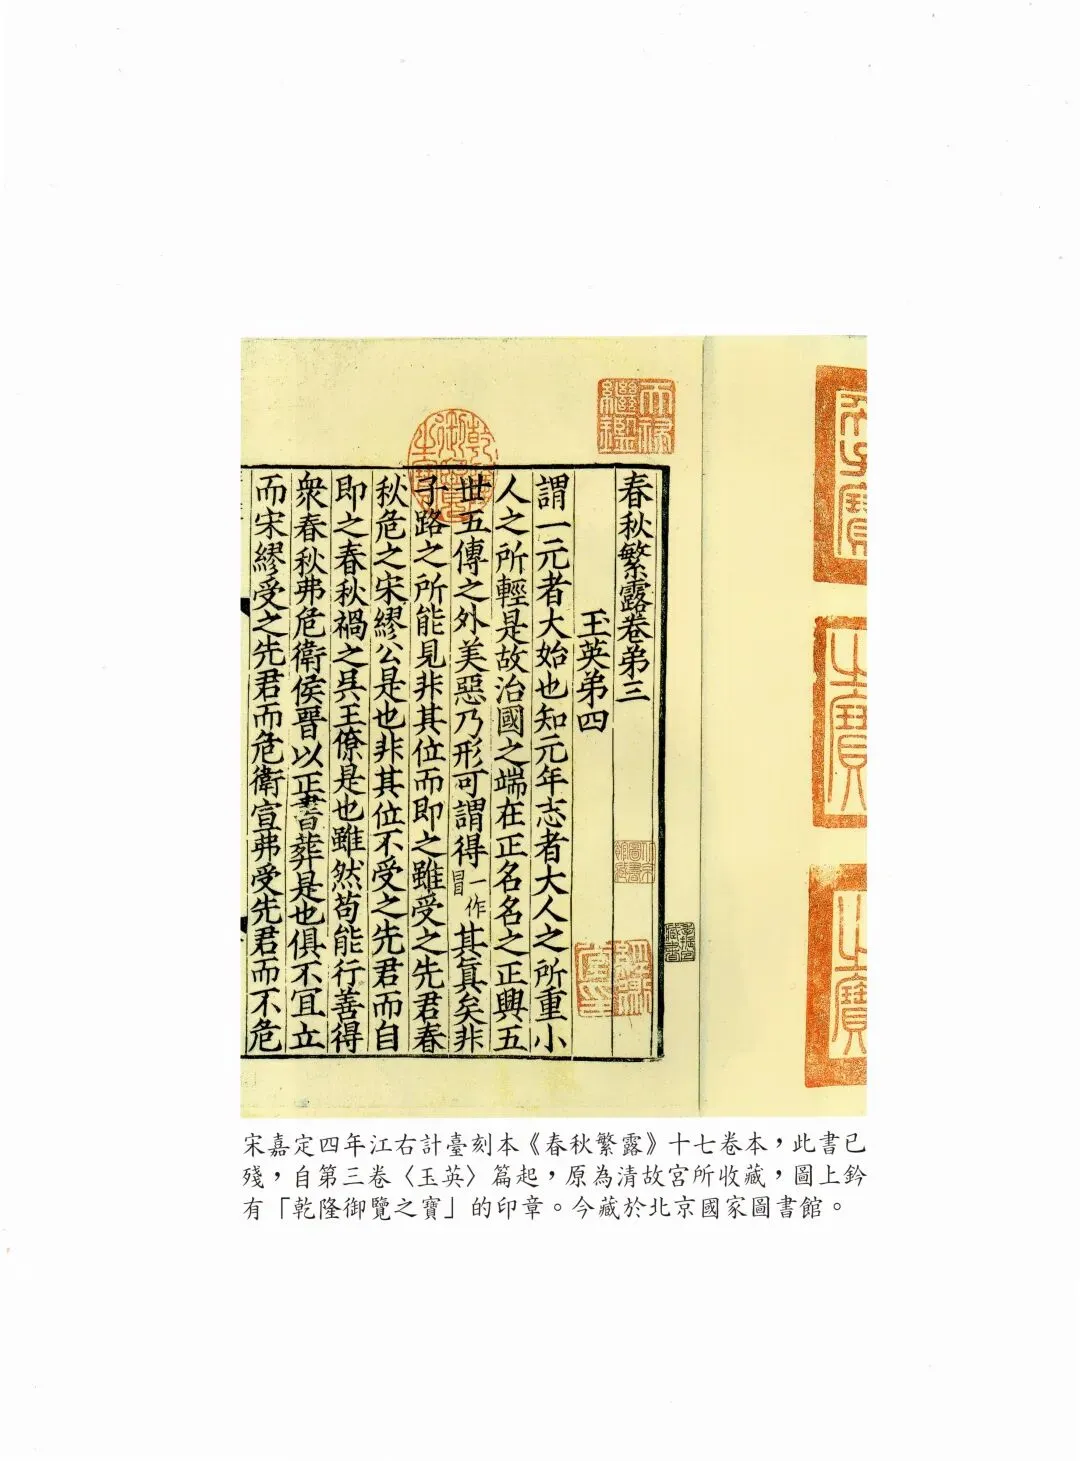 春秋繁露卷弟三
玉英弟四
謂一元者大始也知元年志者大人之所重小
人之所輕是故治國之端在正名名之正興五
丗五傳之外美惡乃形可謂得一作冒其眞矣非
子路之所能見非其位而即之雖受之先君春
秋危之宋繆公是也非其位不受之先君而自
即之春秋禍之吳王僚是也雖然苟能行善得
衆春秋弗危衛侯晉以正書葬是也俱不宜立
而宋繆受之先君而危衛宣弗受先君而不危
乾隆御覽之寶
天祿繼鑑
宋嘉定四年江右計臺刻本《春秋繁露》十七卷本，此書已
殘，自第三卷〈玉英〉篇起，原為清故宮所收藏，圖上鈐
有「乾隆御覽之寶」的印章。今藏於北京國家圖書館。